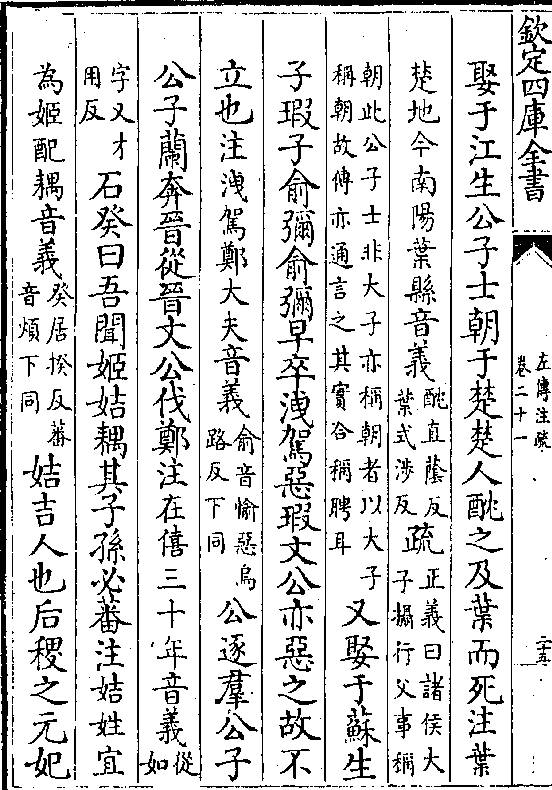 欽定四庫全書
左傳注疏
卷二十一
二十五
娶于江生公子士朝于楚楚人酖之及葉而死注葉
楚地今南陽葉縣音義酖直蔭反
葉式涉反疏正義曰諸侯大
子攝行父事稱
朝此公子士非大子亦稱朝者以大子
稱朝故傳亦通言之其實合稱聘耳又娶于蘇生
子瑕子俞彌俞彌早卒洩駕惡瑕文公亦惡之故不
立也注洩駕鄭大夫音義俞音愉惡烏
路反下同公逐羣公子
公子蘭奔晉從晉文公伐鄭注在僖三十年音義從
如
字又才
用反石癸曰吾聞姬姞耦其子孫必蕃注姞姓宜
為姬配耦音義癸居揆反蕃
音煩下同姞吉人也后稷之元妃